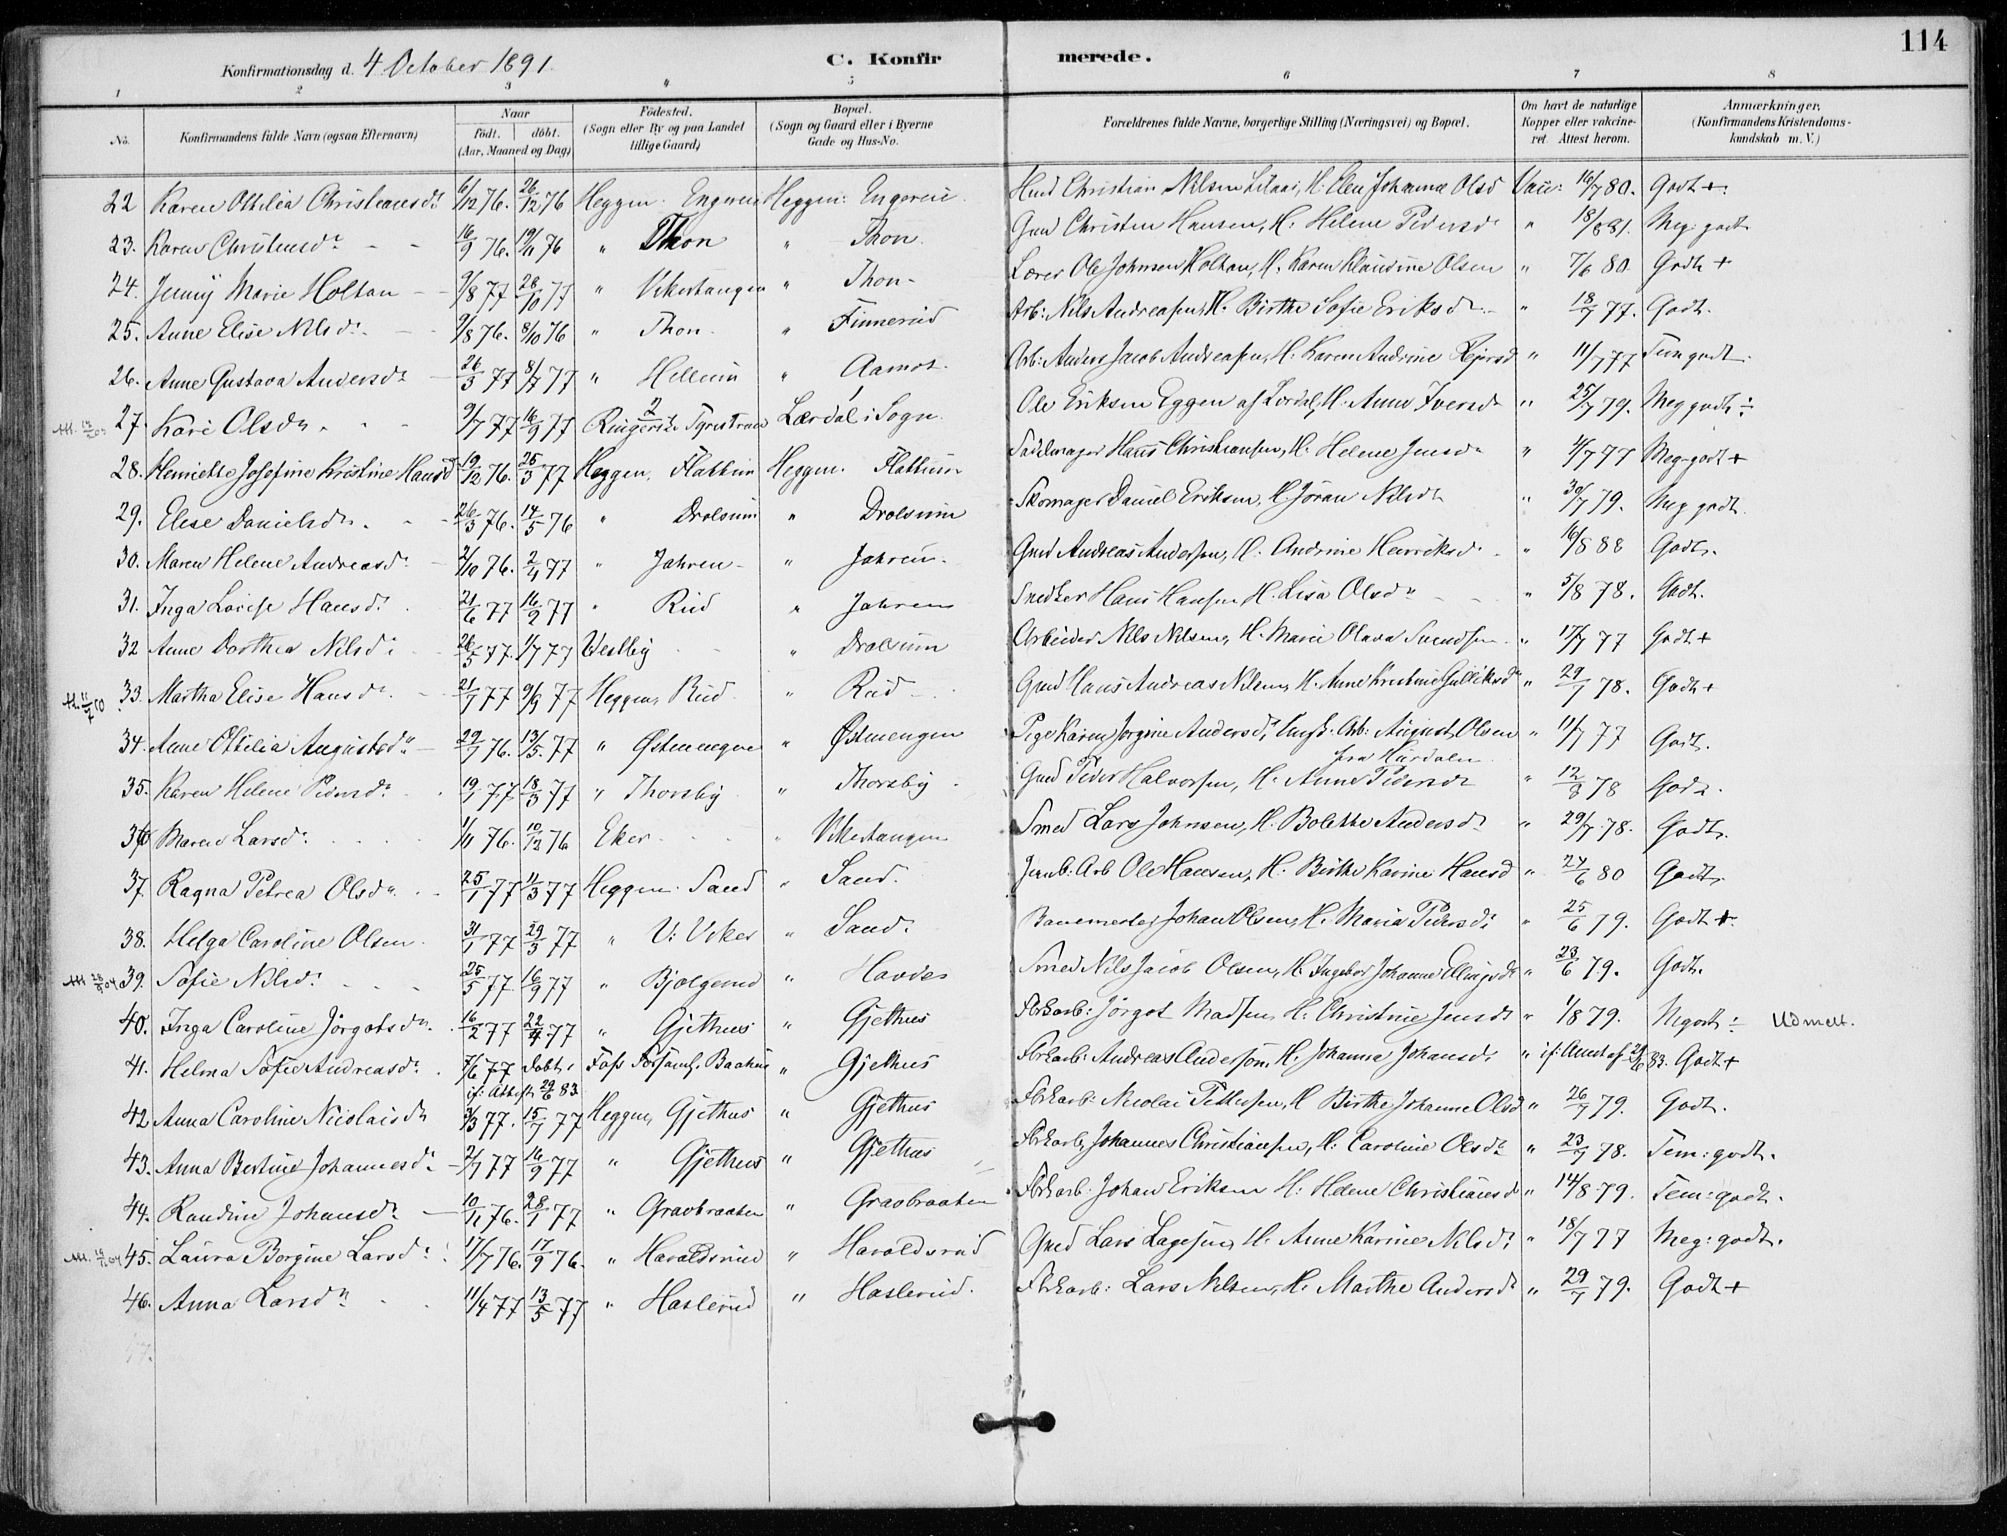 114
Konfirmationsdag d. 4 October 1891.
C. Konfirmerede.
1 2 3 4 5 6 7 8
No. Konfirmandens fulde Navn (ogsaa Efternavn) Naar födt. döbt. (Aar, Maaned og Dag) Födested. (Sogn eller By og paa Landet tillige Gaard) Bopæl. (Sogn og Gaard eller i Byerne Gade og Hus-No. Forældrenes fulde Navne, borgerlige Stilling (Næringsvei) og Bopæl. Om havt de naturlige Kopper eller vakcineret. Attest herom. Anmærkninger. (Konfirmandens Kristendomskundskab m. V.)
22 Karen Ottilia Christiansdr 6/12 76. 26/12 76 Heggen. Heggen: Christian Nilsen H: Elen Johanne Olsd Vac: 16/7 80. Godt +
23. Karen Christensdr 16/9 76. 19/11 76 " Thon " Thon. Gmd Christen Hansen, H. Helene Pedersdr " 18/8 81. Meg: godt
24. Jenny Marie Holtan 9/8 77 28/10 77 " Vikertangen " Thon Lærer Ole Johnsen Holtan, H. Karen Klaudine Olsen " 7/6 80 Godt +
25. Anne Elise Nilsdr 9/8 76. 8/10 76 " Thon " Finnerud Arb: Nils Andreasen, H. Birthe Sofie Eriksdr " 18/7 77. Godt.
26. Anne Gustava Andersdr 26/3 77 8/7 77 " Hellum " Aamot Arb: Anders Jacob Andreasen, H: Karen Andrine " 11/7 77 Tem godt.
27. Kari Olsdr 9/7 77 16/9 77 Ringerike Tyristrand Lærdal i Sogn. Ole Eriksen Eggen af Lærdal, H: Anne Iversdr " 25/7 79. Meg godt ÷
28. Henriette Josefine Kristine Hansd 19/12 76. 25/3 77 Heggen, Flattum Heggen. Flattum Sadelmager Hans Christiansen, H. Helene Jensdr " 4/7 77 Meg-godt +
29. Elise Danielsdr 26/3 76. 14/5 76 " Drolsum " Drolsum Skomager Daniel Eriksen, H Jöran Nilsdr " 30/7 79. Meg godt.
30. Maren Helene Andreasdr 2/10 76. 2/4 77 " Jahren " Jahren. Gmd Andreas Andersen, H. Andrine Henriksdr " 16/8 88 Godt.
31. Inga Lovise Hansdr 21/6 77 16/9 77 " Rud " Jahren Snedker Hans Hansen, H. Lisa Olsdr " 5/8 78. Godt.
32 Anne Dorthea Nilsdr 26/5 77. 1/7 77 Vestby " Drolsum Arbeider Nils Nilsen, H. Marie Olava Svendsen " 17/7 77 Godt +
33. Martha Elise Hansdr 21/7 77 9/9 77 Heggen, Rud " Rud Gmd Hans Andreas Nilsen, H. Anne Kristine Gulliksdr " 29/7 78. Godt +
34. Anne Ottilia Augustsdr 29/7 76. 13/5 77 " Østmengen " Østmengen Pige Karen Jorgine Andersdr, Ungk. Arb: August Olsen fra Hurdalen " 11/7 77 Godt.
35. Karen Helene Pedersdr 19/1 77 18/3 77 " Thorsby " Thorsby Gmd Peder Halvorsen, H. Anne Pedersdr " 12/8 78 Godt.
36 Maren Larsdr 1/11 76. 10/12 76 Eker " Vikertangen Smed Lars Johnsen, H. Bolette Andersdr " 29/7 78. Godt.
37. Ragna Petrea Olsdr 25/1 77 11/3 77 Heggen. Sand " Sand Jernb: Arb Ole Hansen, H. Birthe Karine Hansd " 24/6 80 Godt.
38. Helga Caroline Olsen 31/1 77 29/3 77 " V: Viker " Sand. Banemester Johan Olsen, H. Maria Pedersdr " 25/6 79. Godt +
39. Sofie Nilsdr 25/5 77 16/9 77 " Bjölgerud " Hovde Smed Nils Jacob Olsen, H. Ingebor Johanne Ellingsdr " 23/6 79. Godt.
40. Inga Caroline Jörgotsdr 16/2 77 22/4 77 " Gjethus " Gjethus Fbrkarb: Jörgot Madsen, H. Christine Jensdr " 1/8 79. M godt ÷ Udmelt.
41. Helma Sofie Andreasdr 7/6 77 Döbt i Foss Baahus " Gjethus Fbrkarb: Andreas Anderson, H. Johanna Johansdr " if: Attest af 29/6 83. Godt +
if: Attest 29/6 83
42 Anna Caroline Nicolaisdr 3/3 77. 15/7 77 Heggen, Gjethus " Gjethus Fbrkarb: Nicolai Pettersen, H Birthe Johanne Olsd " 26/7 79. Godt.
43. Anna Bertine Johannesdr 2/7 77 16/9 77 " Gjethus " Gjethus Fbrkarb, Johannes Christiansen, H: Caroline Olsdr " 23/7 78. Tem: godt.
44. Randine Johansdr 10/11 76. 28/1 77 " Gravbraaten " Gravbraaten Fbrkarb: Johan Eriksen H: Helene Christiansdr " 14/8 79. Tem: godt.
45. Laura Borgine Larsdr 17/7 76. 17/9 76. " Haraldsrud " Haraldsrud Gmd Lars Lagesen, H. Anne Karine Nilsdr " 18/7 77 Meg: godt.
46. Anna Larsdr 11/4 77 13/5 77 " Haslerud " Haslerud. Fbrkarb: Lars Nilsen, H. Marthe Andersdr " 29/7 79. Godt +